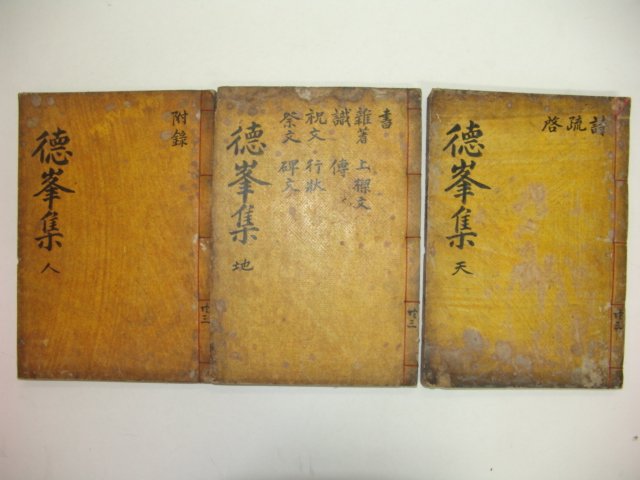 詩
疏
啓
德峯集 天
共三
書
雜著 上樑文
識 傳
祝文 行狀
祭文 碑文
德峯集 地
共三
附錄
德峯集 人
共三